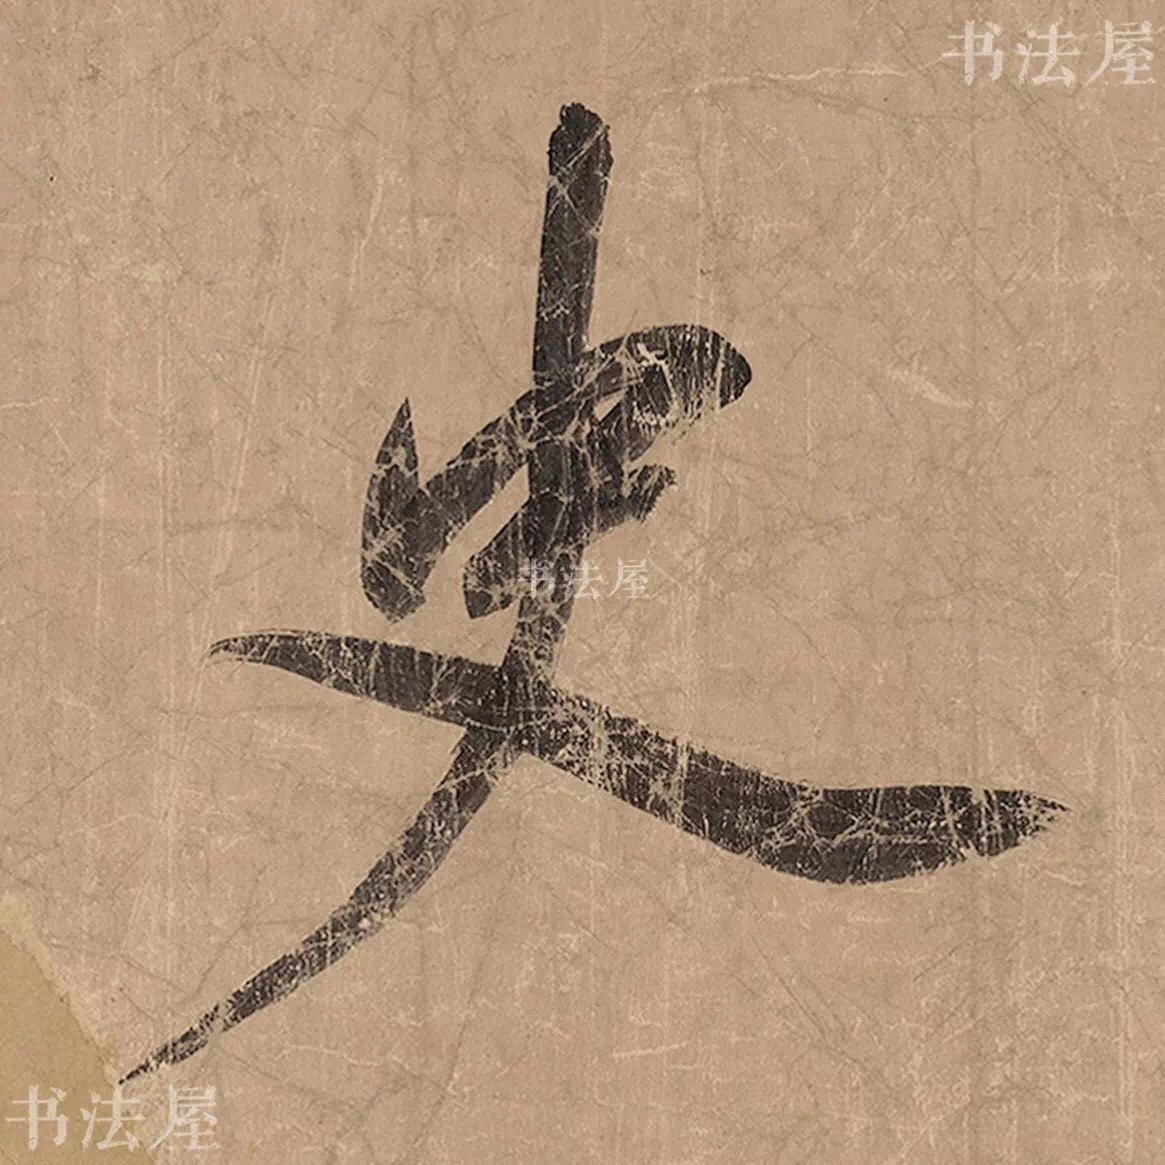 书法屋
史
书法屋
书法屋